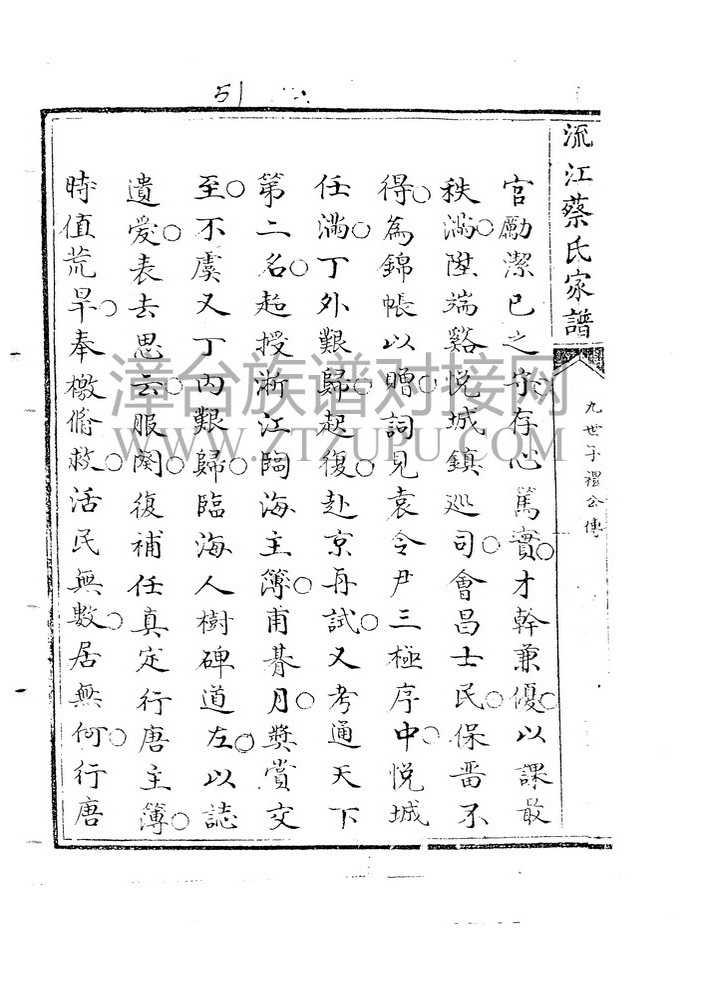 51
流江蔡氏家譜
九世子禮公傳
官勵潔已之守存心篤實○才幹兼優○以課最
秩滿○陞端谿悅城鎮巡司○會昌士民○保畱不
得○為錦帳以贈○詞見袁令尹三極序中○悅城
任滿○丁外艱歸○起復○赴京再試○又考通天下
第二名○超授浙江臨海主簿○甫朞月○獎賞交
至○不虞又丁內艱歸○臨海人樹碑道左○以誌
遺愛○表去思云○服闋○復補任真定行唐主簿○
時值荒旱○奉檄脩救○活民無數○居無何○行唐
漳台族谱对接网
WWW.ZTZUPU.COM